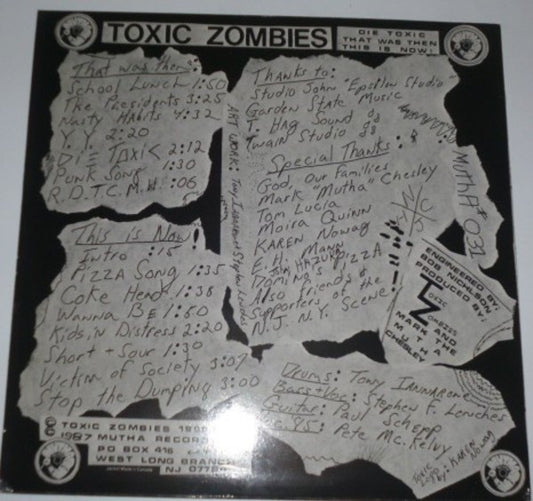 TOXIC ZOMBIES
DIE TOXIC
THAT WAS THEN
THIS IS NOW!
That was then:
School Lunch 1:50
The Presidents 3:25
Nasty Habits 4:32
Y.Y. 2:20
DiE ToxiC 2:12
Punk Song 1:30
R.D.T.C.M.H. :06
This is Now!
Intro :15
Pizza Song 1:35
Coke Head 1:38
Wanna BE 1:50
Kids in Distress 2:20
Short + Sour 1:30
Victim of Society 3:07
Stop the Dumping 3:00
ART WORK: Tony Iannarone + Stephen Leruches
Thanks to:
Studio John "Epsilon Studio"
Garden State Music
T. Hag Sound
Twain Studio 88
Special Thanks:
God, Our Families
Mark "Mutha" Chesley
Tom Lucia
Moira Quinn
KAREN Nowag
E.H. Mann
Domino's PIZZA
Also Friends &
Supporters of the
N.J. N.Y. Scene
MuthA # 031
ENGINEERED BY:
BOB NICHLSON
PRODUCED BY:
TOXIC
ZOMBIES
AND
MARK THE
MUTHA
CHESLEY
Drums: Tony Iannarone
Bass+Voc: Stephen F. Leruches
Guitar: Paul Schepp
Pete Mc.Kelvy
Toxic
Logo
By: KAREN
Nowag
TOXIC ZOMBIES
1987 MUTHA RECORDS
PO BOX 416
WEST LONG BRANCH
NJ